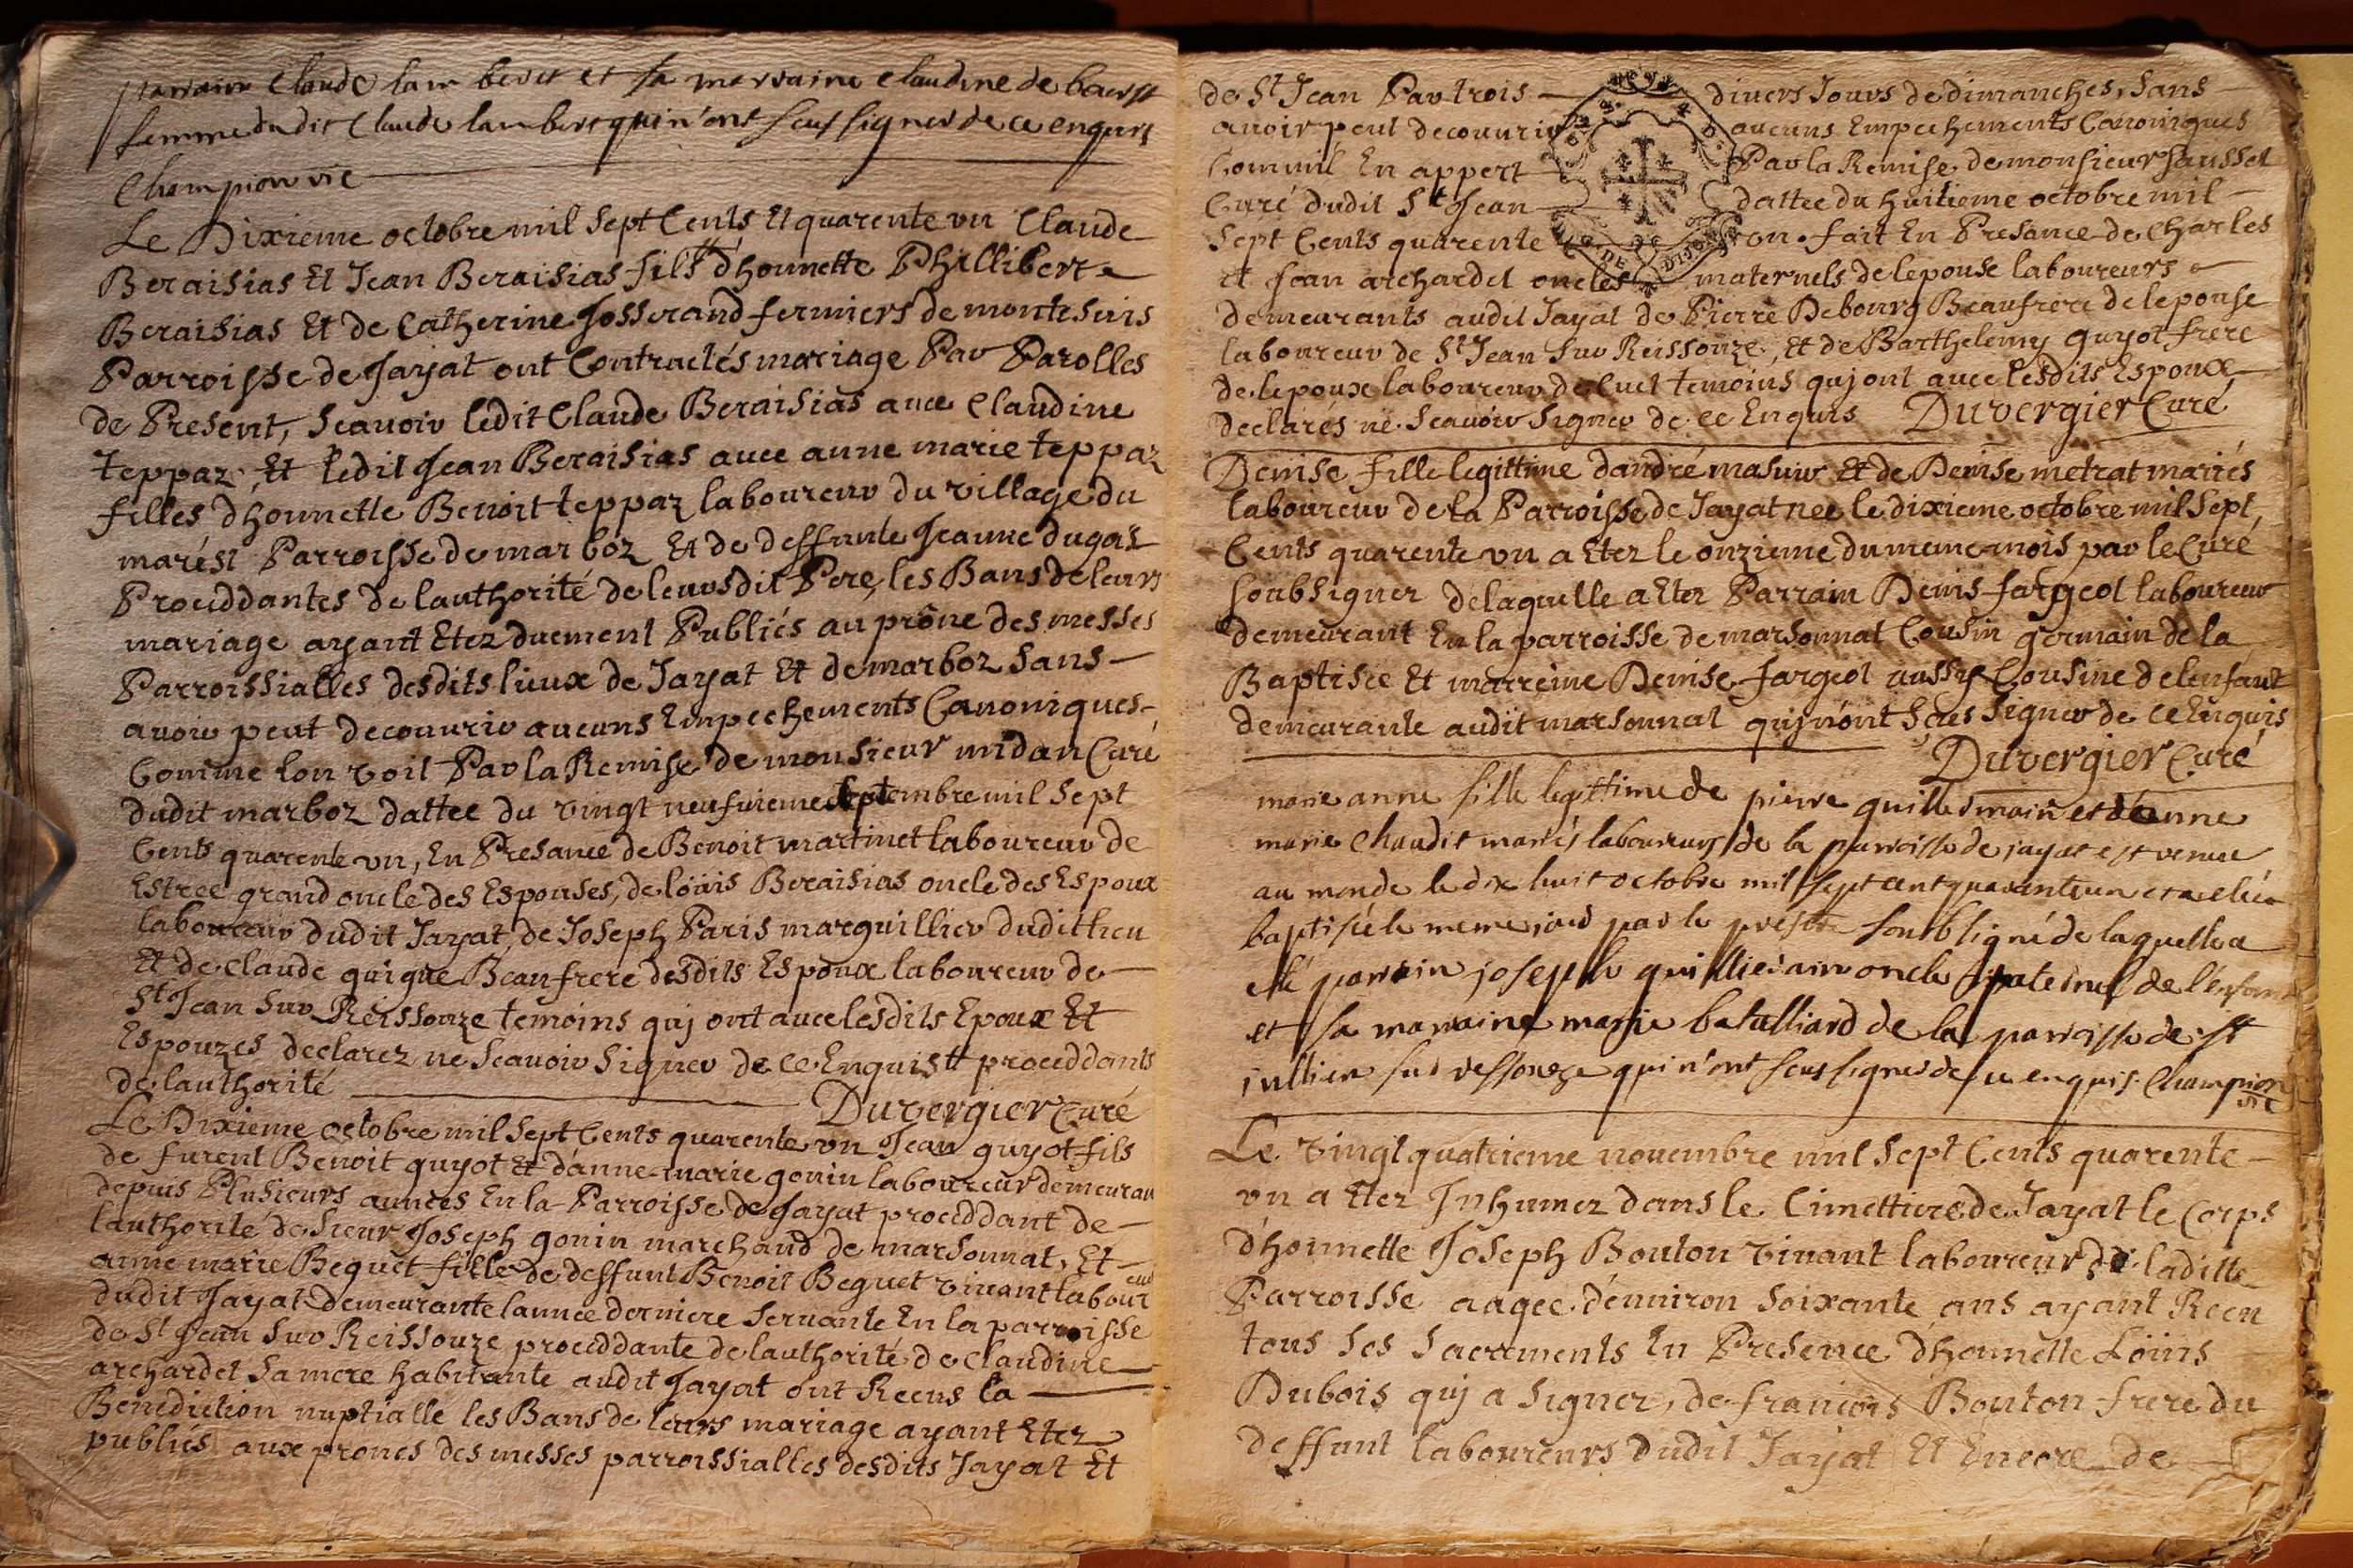 parrain Claude lambert et sa marraine Claudine de bourst
femme dudit Claude lambert qui n'ont sceus signer de ce enquis
Champion vic
Le Dixieme octobre mil sept Cents Et quarente vn Claude
Beraisias Et Jean Beraisias fils d'honnette Phillibert
Beraisias Et de Catherine Josserand fermiers de montsuis
Parroisse de Jayat ont Contractés mariage Par Parolles
de Present, Scauoir ledit Claude Beraisias auec Claudine
teppaz, Et ledit Jean Beraisias auec anne marie teppaz
filles d'honnette Benoit teppaz laboureur du village du
marést Parroisse de marboz Et de deffunte Jeanne dugas
Proceddantes de lauthorité de leursdit Pere, les Bans de leurs
mariage ayant Etez duement Publiés au prône des messes
Parroissialles desdits lieux de Jayat Et de marboz sans
auoir peut decouurir aucuns Empechements Canoniques
Comme lon voit Par la Remise de monsieur midan Curé
dudit marboz dattee du vingt neufuieme septembre mil sept
Cents quarente vn, En Presance de Benoit martinet laboureur de
Estree grand oncle des Espouses, de loüis Beraisias oncle des Espoux
laboureur dudit Jayat, de Joseph Paris marguillier dudit lieu
Et de Claude guigue Beaufrere desdits Espoux laboureur de
St Jean sur Reissouze temoins quj ont auec lesdits Epoux Et
Espouzes declarez ne scauoir signer de ce Enquist proceddants
de lauthorité
Duvergier Curé
Le Dixieme octobre mil sept Cents quarente vn Jean guyot fils
de furent Benoit guyot Et d'anne marie gonin laboureur demeuran
depuis Plusieurs années En la Parroisse de Jayat proceddant de
lauthorité de sieur Joseph gonin marchand de marsonnat, Et
anne marie Beguet fille de deffunt Benoit Beguet viuant labour eur
dudit Jayat demeurante lannee derniere seruante En la parroisse
de St Jean sur Reissouze proceddante de lauthorité de Claudine
archardet sa mere habitante audit Jayat ont Receus la
Benediction nuptialle les Bans de leurs mariage ayant Etez
publiés aux prones des messes parroissialles desdits Jayat Et
de St Jean Par trois divers Jours de dimanches, sans
auoir peut decouurir aucuns Empechements Canoniques
Commil En appert Par la Remise de monsieur sausset
Curé dudit St Jean dattee du huitieme octobre mil
sept Cents quarente vn. fait En Presance de Charles
et Jean archardet oncles maternels de lepouse laboureurs
demeurants audit Jayat de Pierre Debourg Beaufrere de lepouse
laboureur de St Jean sur Reissouze, Et de Barthelemy guyot frere
de lepoux laboureur de Cuet temoins quj ont auec lesdits Espoux
declarés ne scauoir signer de ce Enquis Duvergier Curé
Denise fille legittime dandré masuir Et de Denise metrat mariés
laboureur de la Parroisse de Jayat nee le dixieme octobre mil sept
Cents quarente vn a Etez le onzieme du meme mois par le Curé
soubsigner de laquelle a Etez Parrain Denis fargeot laboureur
demeurant En la parroisse de marsonnat Cousin germain de la
Baptisee Et marreine Denise fargeot aussy Cousine de lenfant
demeurante audit marsonnat quj n'ont sceus signer de ce Enquis
Duvergier Curé
marie anne fille legittime de pierre guillermain et d'anne
marie Chaudit mariés laboureurs de la parroisse de jayat est venue
au monde le dix huit octobre mil sept cent quarante un et a eté
baptisée le meme jour par le prestre soubsigné de laquelle a
eté parrain joseph guillermain oncle paternel de l'enfant
et sa marraine marie batalliard de la parroisse de st
jullien sur ressouze qui n'ont sceus signer de ce enquis. Champion vic
Le vingt quatrieme nouembre mil sept Cents quarente
vn a Etez Inhumez dans le Cimettiere de Jayat le Corps
d'honnette Joseph Bouton viuant laboureur de laditte
Parroisse aagee d'enuiron soixante ans ayant Receu
tous ses sacrements En Presence d'honnette Loüis
Dubois quj a signer, de francois Bouton frere du
deffunt laboureurs dudit Jayat Et Encore de